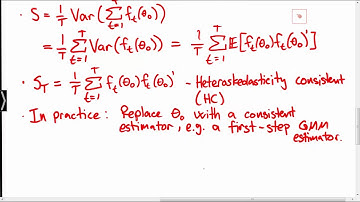 · S = 1/T Var( Σ_{t=1}^{T} f_t(θ₀) )
= 1/T Σ_{t=1}^{T} Var(f_t(θ₀)) = 1/T Σ_{t=1}^{T} 𝔼[f_t(θ₀)f_t(θ₀)']
· S_T = 1/T Σ_{t=1}^{T} f_t(θ₀)f_t(θ₀)' - Heteroskedasticity consistent
(HC)
· In practice: Replace θ₀ with a consistent
estimator, e.g. a first-step GMM
estimator.